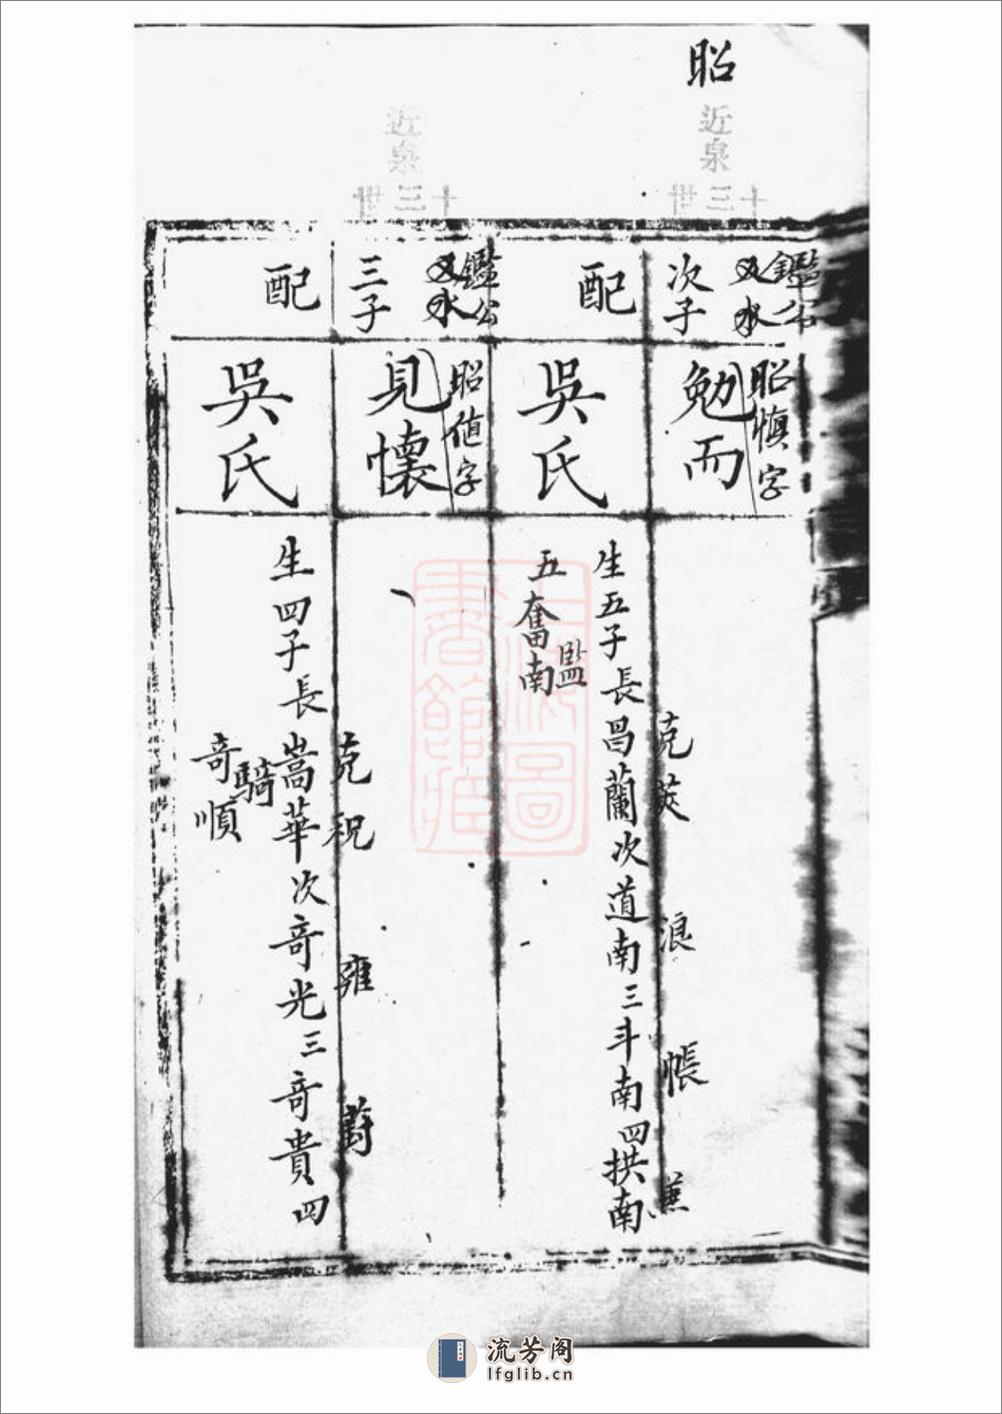 昭
近泉
十三世
鑑公
次子
昭慎字
勉而
配
吳氏
生五子長昌蘭次道南三斗南四拱南
五奮南
克
浪
帳
監
近泉
十三世
鑑公
三子
昭値字
見懷
配
吳氏
生四子長嵩華次奇光三奇貴四
奇順
克祝
雍
蔚
騎
上海圖
書館藏
流芳阁
lfglib.cn